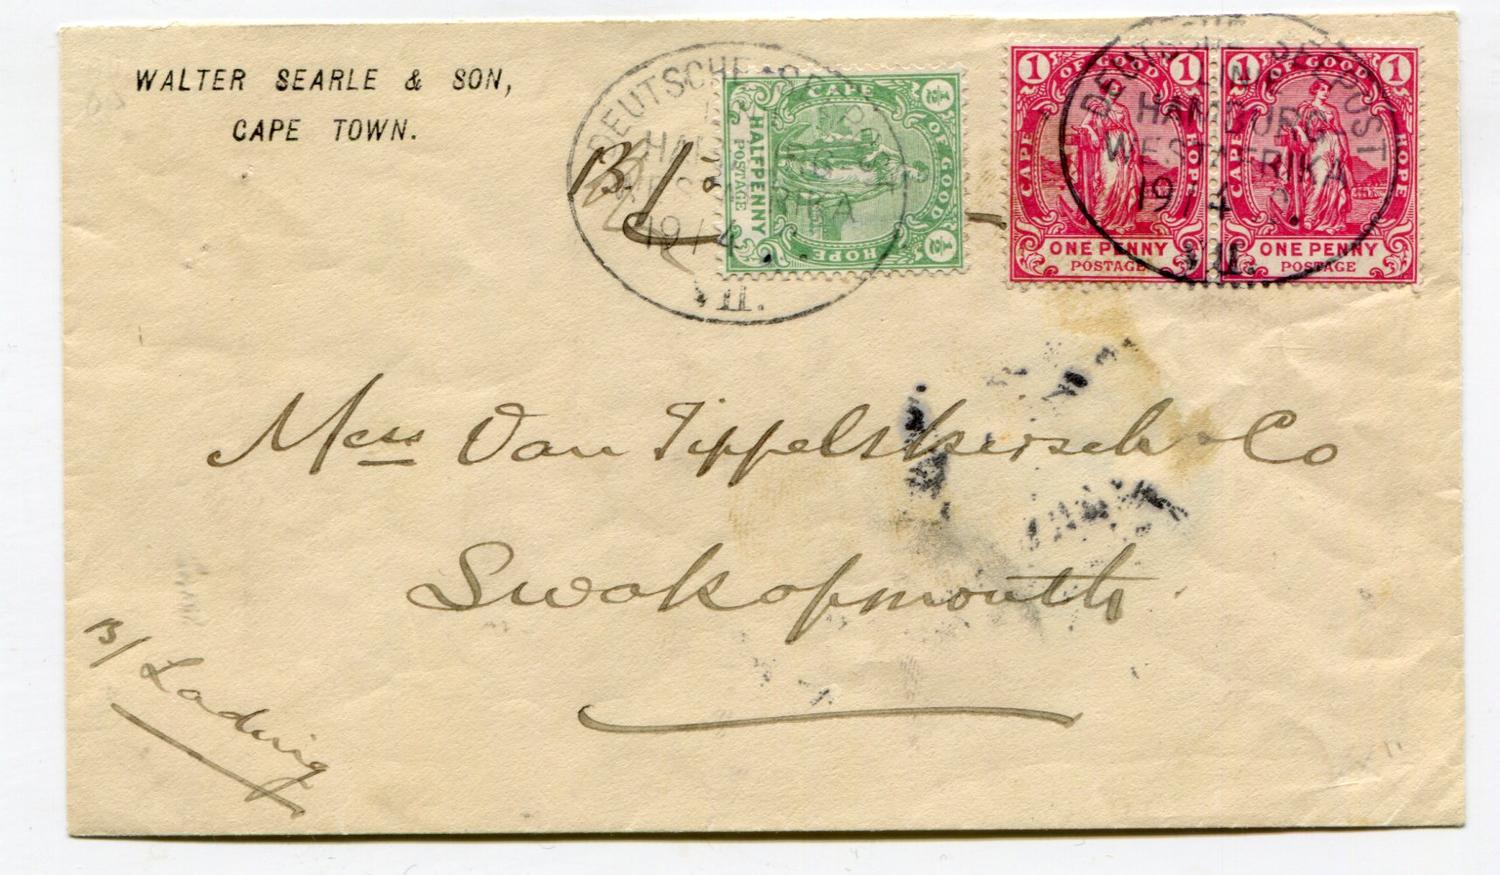 WALTER SEARLE & SON,
CAPE TOWN.
DEUTSCHE SEEPOST
LINIE
HAMBURG
WESTAFRIKA
19/4
VII.
½ CAPE OF GOOD HOPE ½
HALFPENNY
POSTAGE
1 CAPE OF GOOD HOPE 1
ONE PENNY
POSTAGE
1 CAPE OF GOOD HOPE 1
ONE PENNY
POSTAGE
DEUTSCHE SEEPOST
LINIE
HAMBURG
WESTAFRIKA
19/4
VII.
Mess Van Tippelskirsch & Co
Swakopmouth
B/ Lading